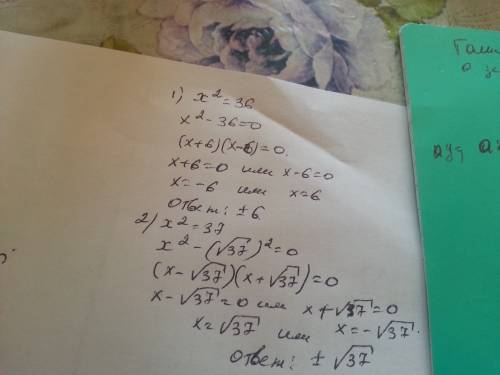 1) x² = 36
x² - 36 = 0
(x+6)(x-6) = 0.
x+6=0 или x-6=0
x = -6 или x = 6
Ответ: ± 6.
2) x² = 37
x² - (√37)² = 0
(x-√37)(x+√37) = 0
x-√37 = 0 или x+√37 = 0
x = √37 или x = -√37.
Ответ: ± √37